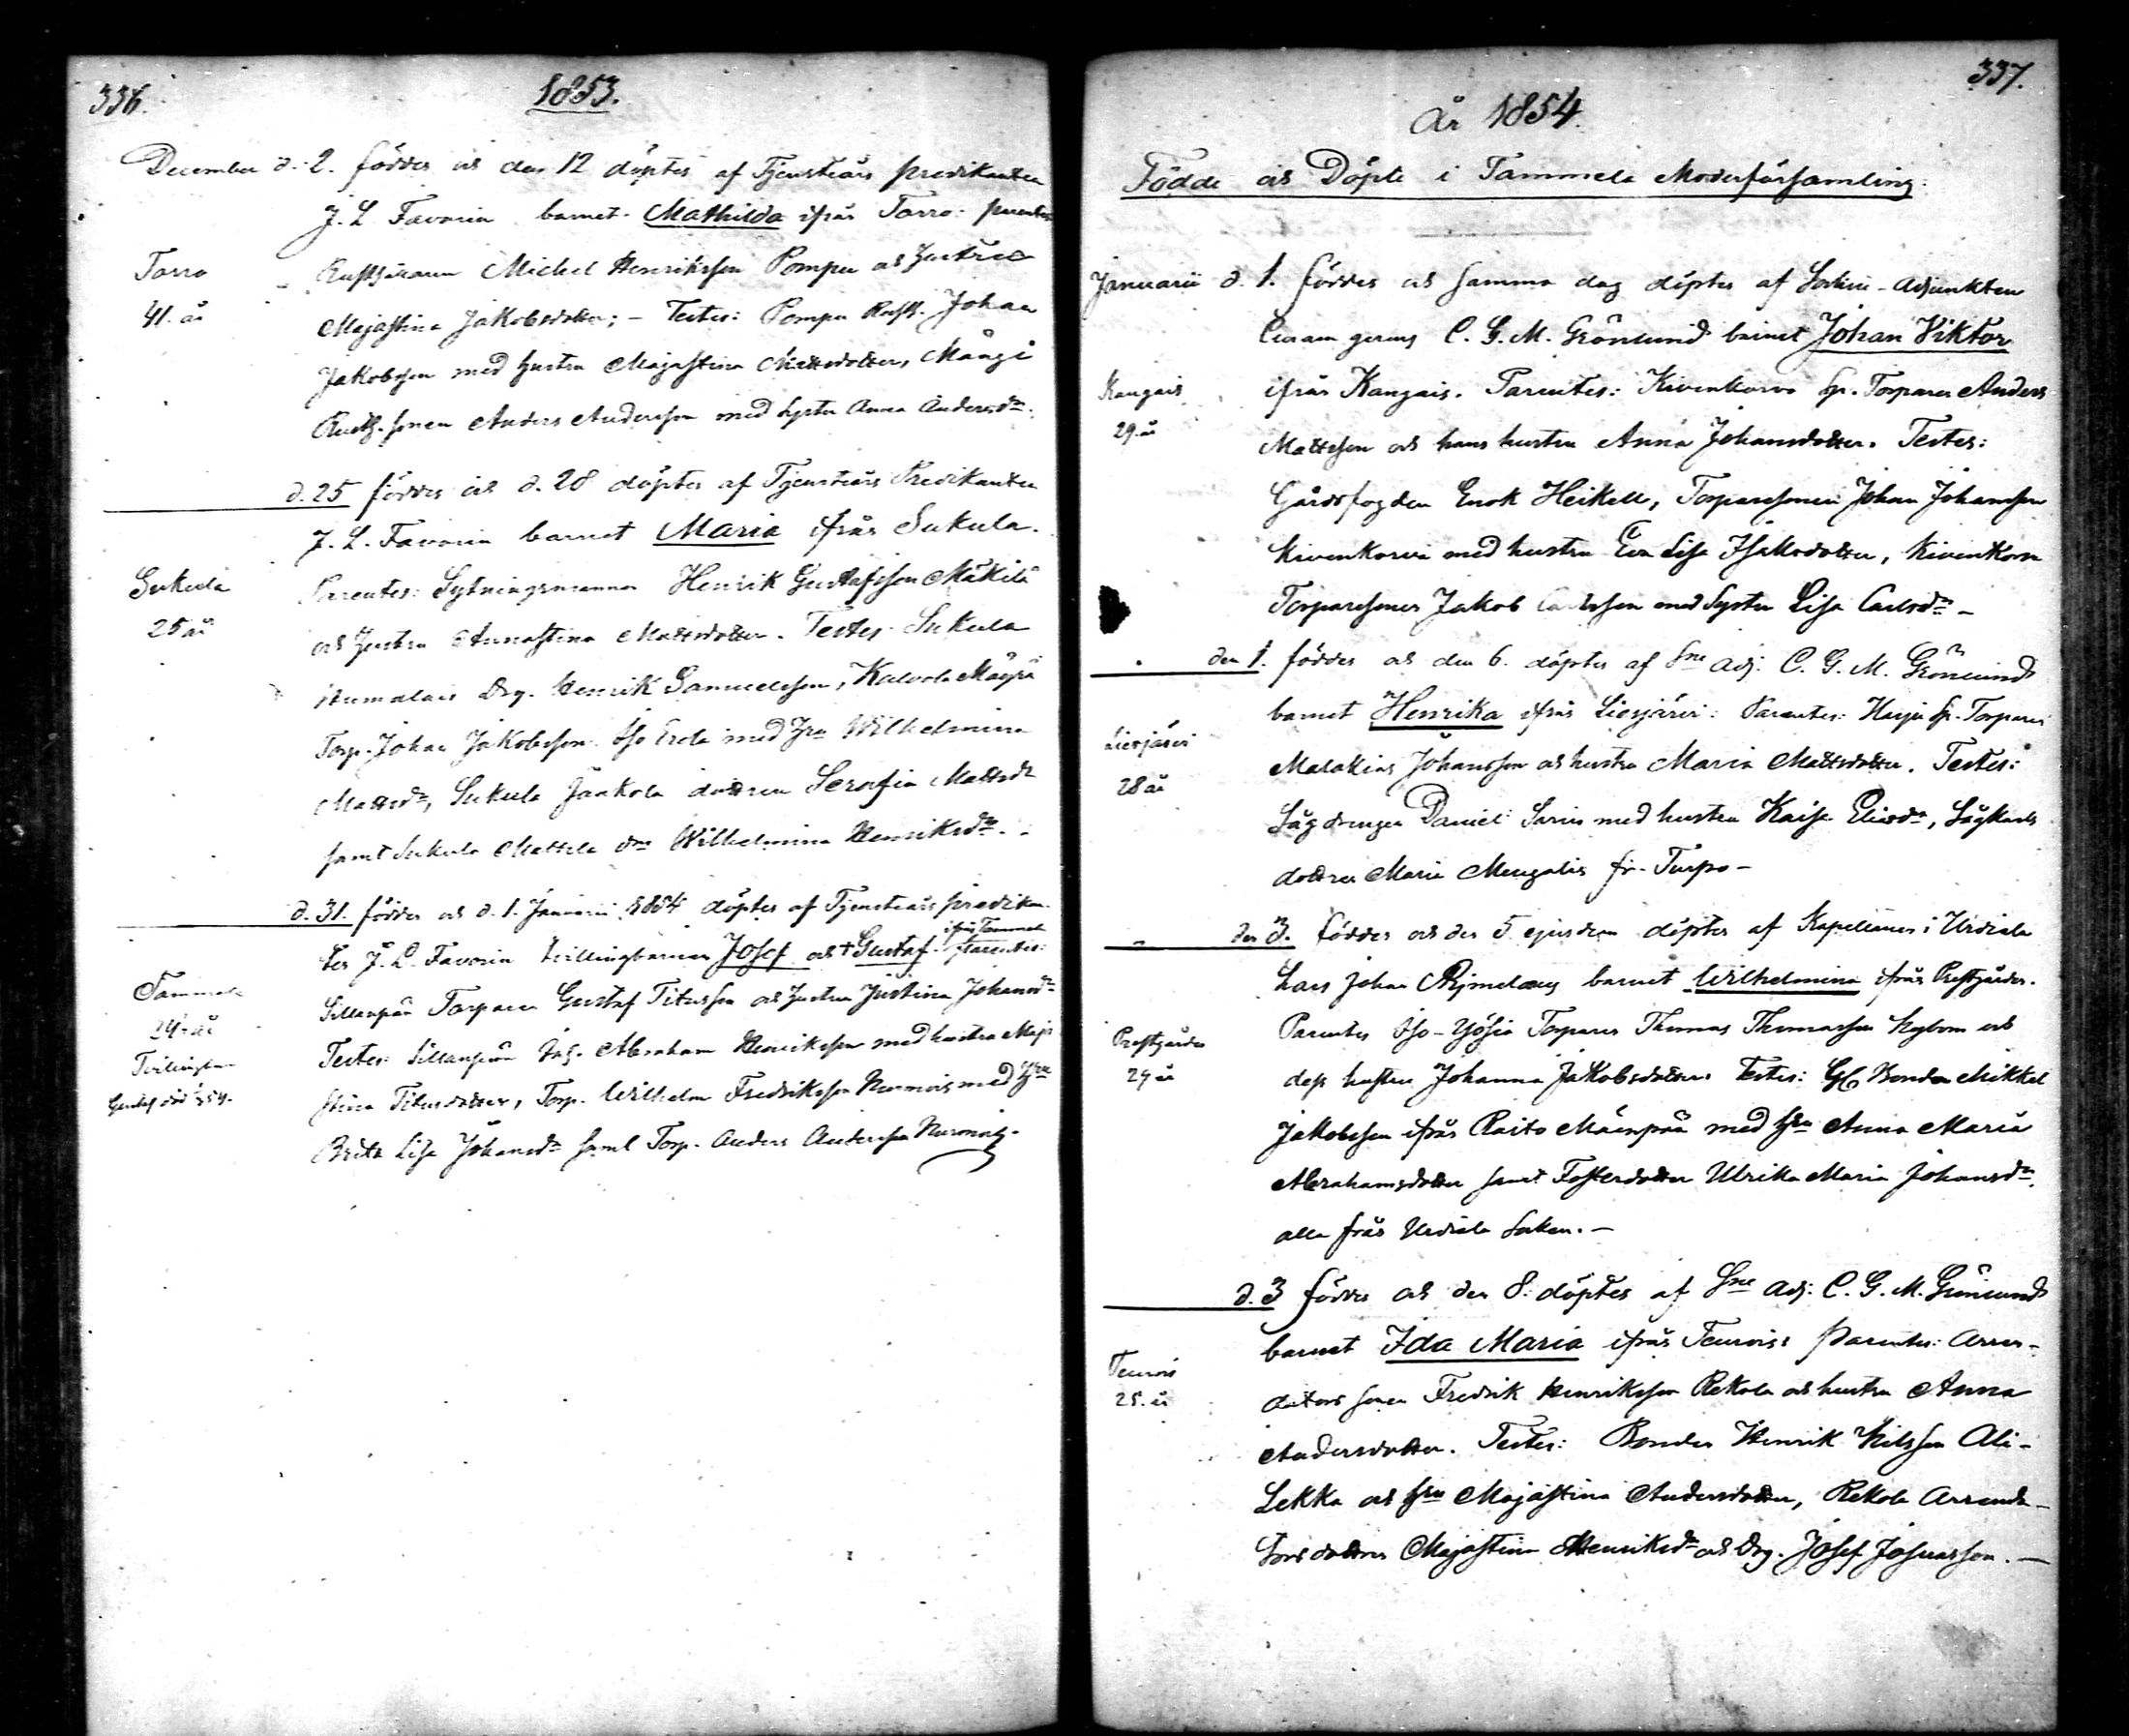 336.
1853.
December d. 2. föddes och den 12 döptes af Tjensteårs predikanten
J. L. Favorin barnet Mathilda ifrån Torro: parentes
Torro
Rusthållaren Michel Henriksson Pompu och hustru
41. år
Majastina Jakobsdotter; – Testes: Pompu Rusth. Johan
Jakobsson med hustru Majastina Mattsdotter,
Rusth. sonen Anders Andersson med syster Anna Andersdr.
d. 25 föddes och d. 28 döptes af Tjensteårs Predikanten
J. L. Favorin barnet Maria ifrån Sukula.
Sukula
Parentes: Sytningsmannen Henrik Gustafsson Mäkilä
25 år
och hustru Annastina Mattsdotter. Testes: Sukula
Drg. Henrik Samuelsson, Kalvola
Torp. Johan Jakobsson Iso Erola med Hru Wilhelmina
Mattsdr, Sukula Jaakola dottren Serafia Mattsdr
samt Sukula Mattila dr Wilhelmina Henriksdr. –
d. 31. föddes och d. 1. Januarii 1854 döptes af Tjensteårs predikan-
ifrån Tammela
ten J. L. Favorin tvillingbarnen Josef och + Gustaf. Parentes:
Tammela
Sillanpää Torparen Gustaf Titusson och hustru Justina Johansdr
24 år
Testes: Sillanpää Abraham Henriksson med hustru Maja
Tvillingar
Stina Titusdotter, Torp. Wilhelm Fredriksson Nurmois med Hru
Gustaf död
Brita Lisa Johansdr samt Torp. Anders Andersson
337.
År 1854.
Födde och Döpte i Tammela Moderförsamling.
Januarii d. 1. föddes och samma dag döptes af Sockne-adjunkten
Curam gerens C. G. M. Grönlund barnet Johan Viktor
Kangais
ifrån Kangais. Parentes: Kivenkorva Sp. Torparen Anders
29. år
Mattsson och hans hustru Anna Johansdotter. Testes:
Gårdsfogden Enok Heikell, Torparesonen Johan Johansson
Kivenkorva med hustru Eva Lisa Isaksdotter, Kivenkorva
Torparesonen Jakob Carlsson med Syster Lisa Carlsdr –
den 1. föddes och den 6. döptes af Sne adj. C. G. M. Grönlund
barnet Henrika ifrån Liesjärvi: Parentes: Harju Sp. Torparen
Liesjärvi
Malakias Johansson och hustru Maria Mattsdotter. Testes:
28 år
Sågdrengen Daniel Sarin med hustru Kaisa Eliasdr, Sågkarls
dottren Maria Mengalis fr. Turpo –
den 3. föddes och den 5 ejusdem döptes af Kapellanen i Urdiala
Lars Johan barnet Wilhelmina ifrån Prestgården.
Prestgården
Parentes Iso-Yösiä Torparen Thomas Thomasson och
29 år
dess hustru Johanna Jakobsdotter. Testes: Bonden Mikkel
Jakobsson ifrån Raito Mäenpää med Hru Anna Maria
Abrahamsdotter samt Fosterdotter Ulrika Maria Johansdr.
alla från Urdiala Socken. –
d. 3 föddes och den 8. döptes af Sne Adj. C. G. M. Grönlund
barnet Ida Maria ifrån Teurois: Parentes: Arren-
Teurois
datorssonen Fredrik Henriksson Rekola och hustru Anna
25. år
Andersdotter. Testes: Bonden Henrik Nilsson Ali-
Lekka och Hru Majastina Andersdotter, Rekola Arrenda-
torsdottren Majastina Henriksdr och Drg. Josef Josuasson. –